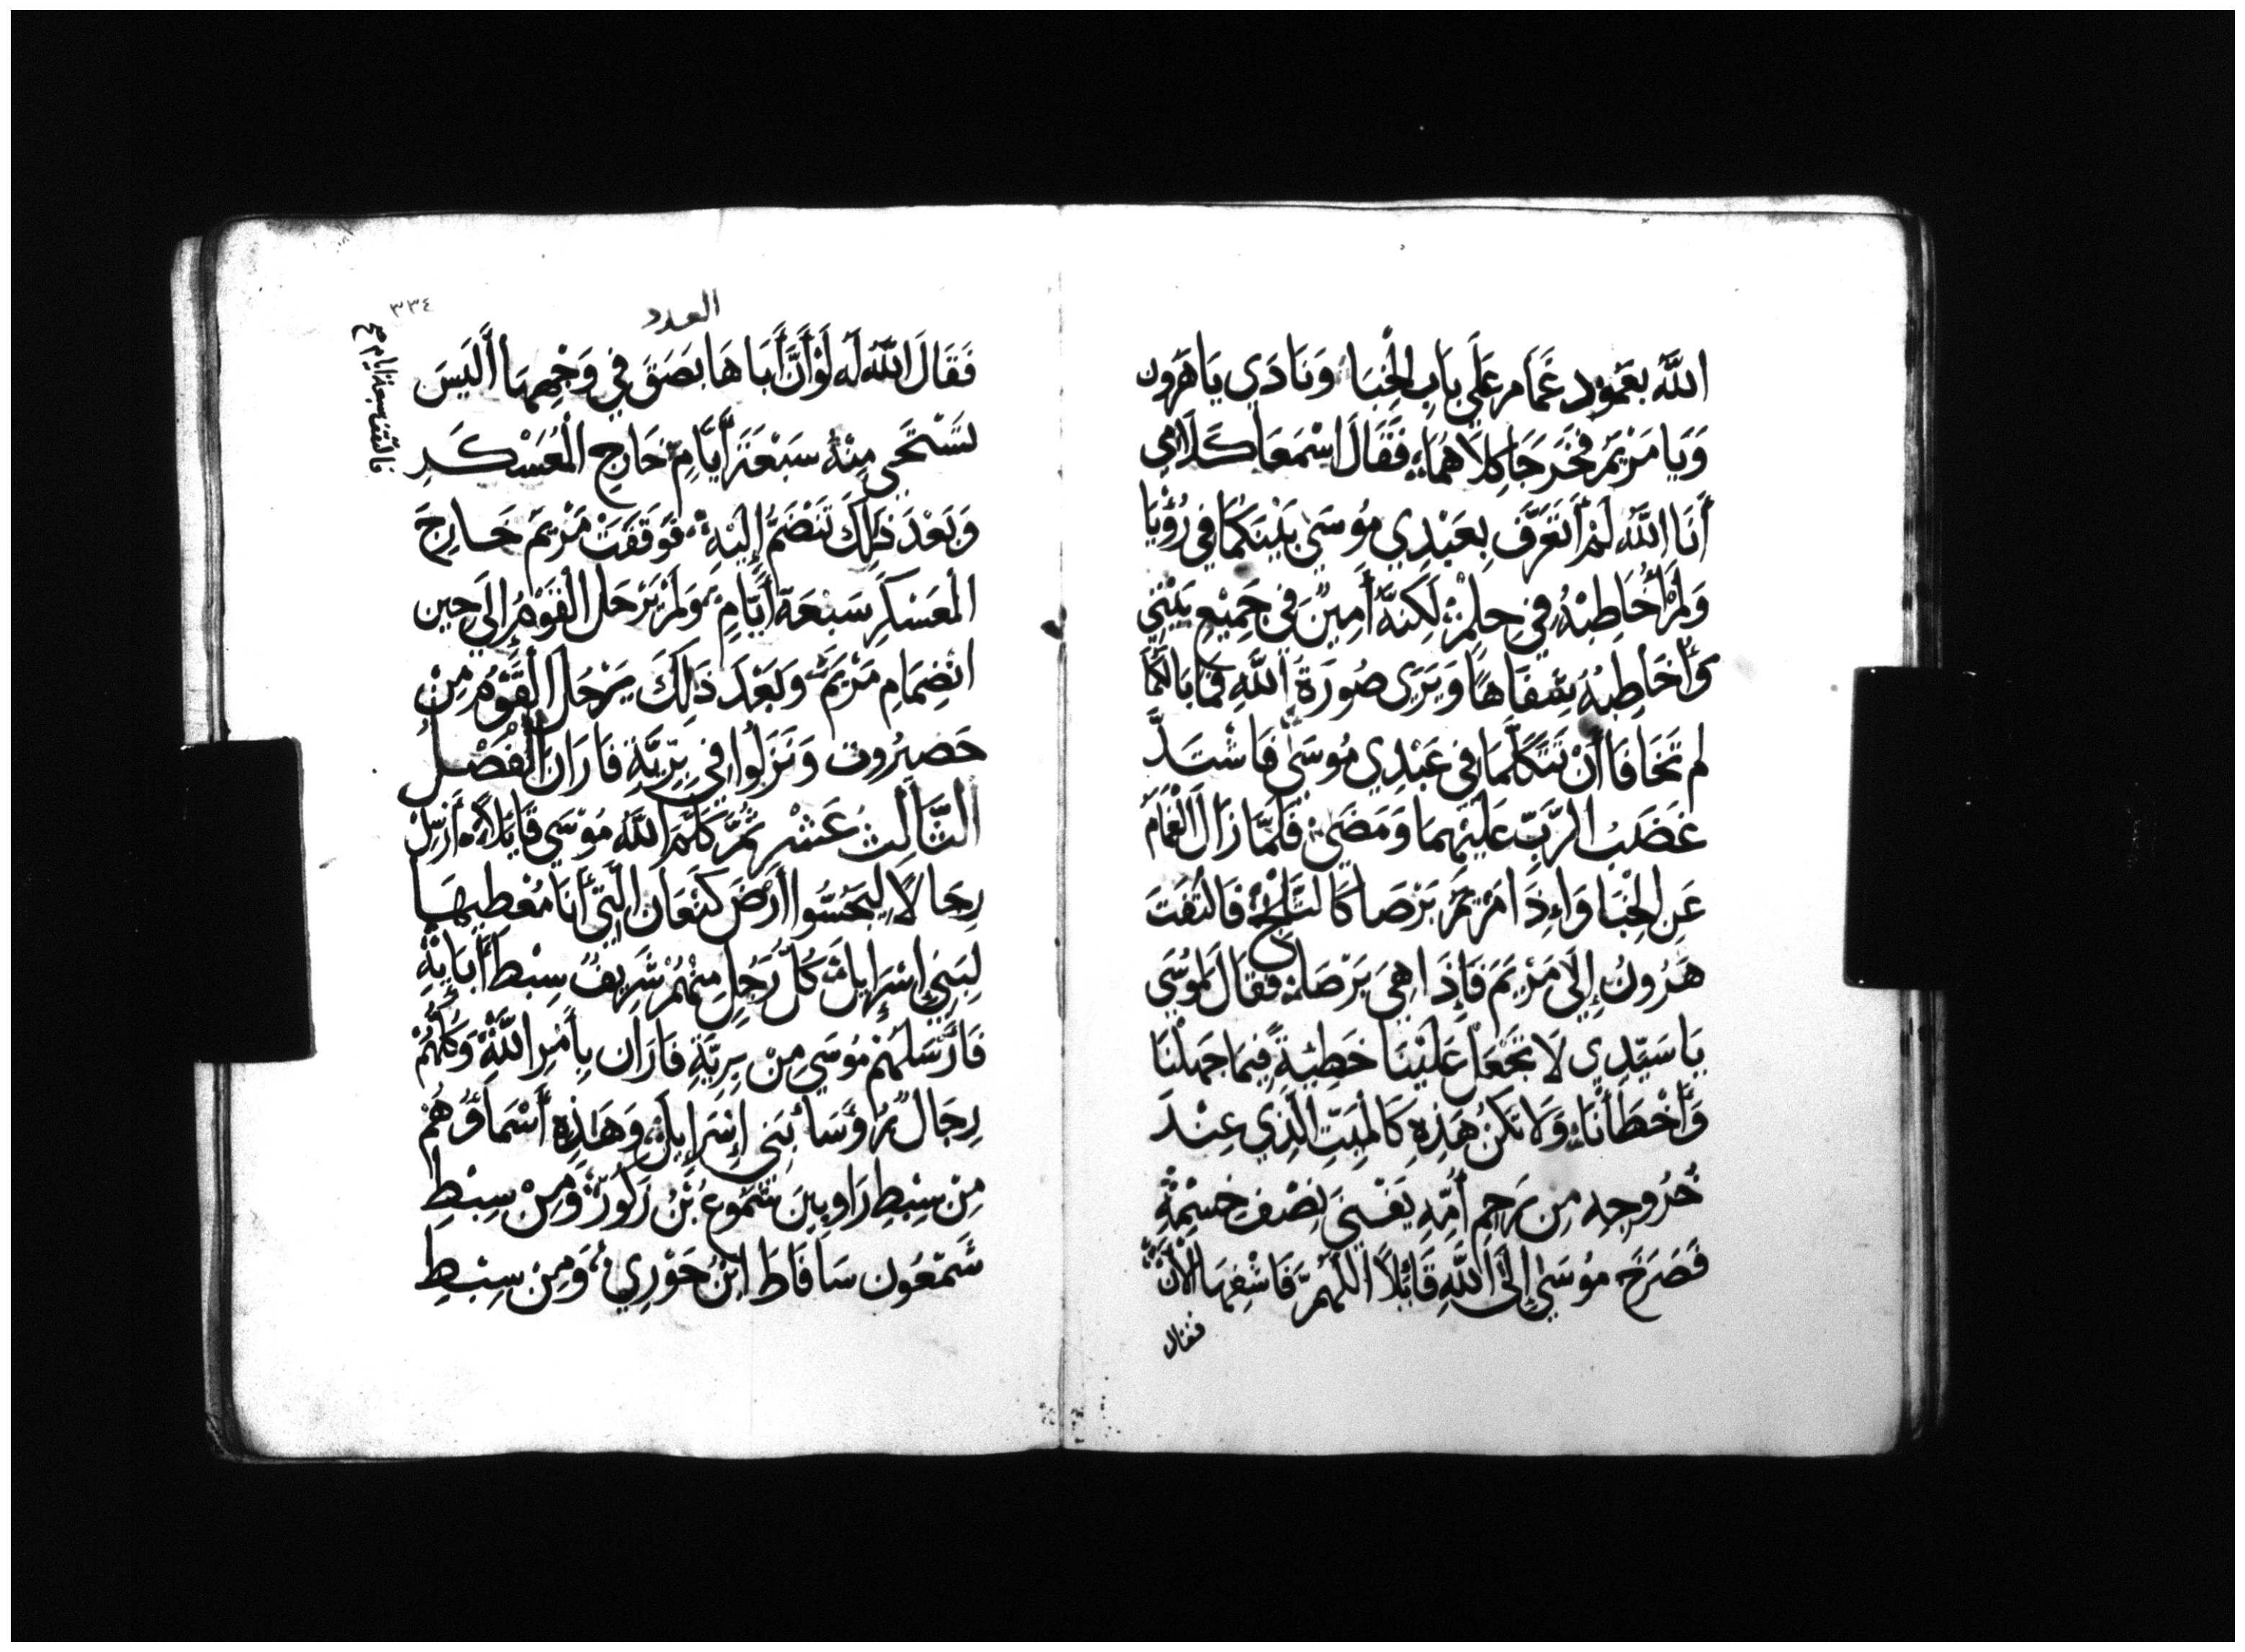 اللَّه بعَمود غَمَام عَلَي بَابِ الخِبَا وَنَادَي يَا هَرون
وَيَا مَرْيَم فخَرَجَا كِلَاهُمَا فَقَالَ اسْمَعَا كَلَامِي
أَنَا اللَّه لَمْ أَتَعَرَّف بِعَبْدِي مُوسَى بَيْنَكُمَا فِي رُؤْيَا
وَلَمْ أُخَاطِبْهُ فِي حِلمْ لَكِنَّهُ أَمِينٌ فِي جَمِيْعِ بَيْتِي
وَأُخَاطِبُهُ شِفَاهًا وَيَرَى صُورَةَ اللَّهِ فَمَا بَالُكُمَا
لم تَخَافَا أَنْ تَتَكَلَّمَا فِي عَبْدِي مُوسَى فَاشْتَدَّ
غَضَبُ الرَّبّ عَلَيْهِمَا وَمَضَى فَلَمَّا زَالَ الْغَمَامُ
عَنِ الخِبَا وَاِذَا مَرْيَمُ بَرْصَا كَالثَّلْجِ فَالْتَفَتَ
هَرُونُ إِلَى مَرْيَمَ فَإِذَا هِيَ بَرْصَا فَقَالَ لِمُوسَي
يَا سَيّدِي لَا تَجْعَلْ عَلَيْنَا خَطِيَّةً فِيمَا جَهِلْنَا
وَأَخْطَأْنَا وَلَا تَكُنْ هَذِهِ كَالْمَيّتِ الَّذِي عِنْدَ
خُرُوجِه مِن رَحِمِ أُمّهِ يَفْنِي نِصْفِ جِسْمِهِ
فَصَرَخَ مُوسَى إِلَى اللَّهِ قَائِلاً اللَّهُمَّ فَاشْفِهَا الْأَنَ
فقال
العدد
٣٣٤
فَقَالَ اللَّهُ لَه لَوْ أَنَّ أَبَاهَا بَصَقَ فِي وَجْهِهَا أَلَيْسَ
تَسْتَحِي مِنْهُ سَبْعَةَ أَيَّامٍ خَارِجِ الْمُعَسْكَرِ
فالتقف سبعة ايام صح
وَبَعْدَ ذَلِكَ تَنْضَمُّ إِلَيْهِ فَوَقَفَتْ مَرْيَم خَارِجَ
الْمَعَسْكَرِ سَبْعَةَ أَيَّامٍ وَلَمْ يَرْحَل الْقَوْمُ إِلَى حِين
انْضِمَامِ مَرْيَمَ وَبَعْدَ ذَلِكَ يَرْحُل الْقَوْمُ مِنْ
حَضِيْرُوت وَنَزَلُوا فِي بَرِّيَّةِ فَارَانَ الْفُصْلُ
الثَّالِثُ عَشْر ثُمَّ كَلَّمَ اللَّهُ مُوْسَي قَايلاً أَرْسِلْ
رِجَالًا لِيَجُسُّوا أَرْضَ كَنْعَان الَّتِي أَنَا مُعْطِيهَا
لِبَنِي إِسْرَايل كُلَّ رَجُلٍ مِنْهُمْ شَرِيفُ سِبْطِ أَبَايهِ
فَأَرْسَلَهُمْ مُوسَي مِنْ بِرِيَّةِ فَارَان بِأَمْرِ اللَّهِ وَكُلُّهُمْ
رِجَالٌ رُؤَسَا بَنِي إِسْرَايل وَهَذِهِ أَسْمَاؤُهُم
مِنْ سِبْطِ رَاوبِينَ شَمُّوع بْنُ زَكُورْ وَمِنْ سِبْطِ
شَمْعُون سَافَاطَ ابْنُ حَوْرِي وَمِن سِبْطِ